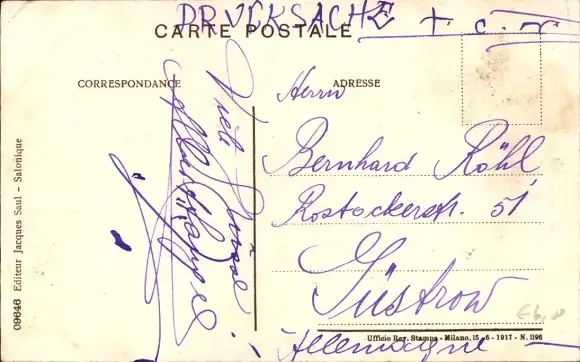 DRUCKSACHE
CARTE POSTALE
CORRESPONDANCE
ADRESSE
Viele Grüsse
Herrn
Bernhard Röhl
Rostockerstr. 51
Güstrow
Allemagne
09646 Editeur Jacques Saul - Salonique
Ufficio Rev. Stampa - Milano, 15-6-1917 - N. 1196